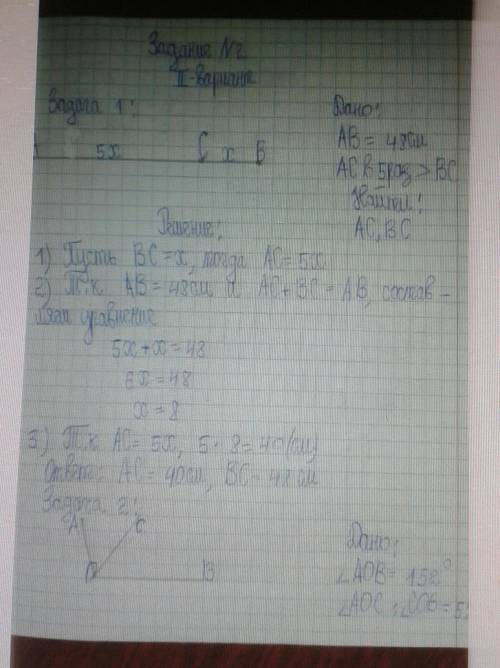 Задание №2
II-вариант
Задача 1:
Дано:
A 5x C x B
AB = 48см
AC в 5 раз > BC
Найти:
AC, BC
Решение:
1) Пусть BC = x, тогда AC = 5x
2) Т.к AB = 48см и AC + BC = AB, состав-
ляем уравнение
5x + x = 48
6x = 48
x = 8
3) Т.к AC = 5x, 5 · 8 = 40(см)
Ответ: AC = 40см, BC = 48 см
Задача 2:
A C
O B
Дано:
∠AOB =
∠AOC : ∠COB = 5